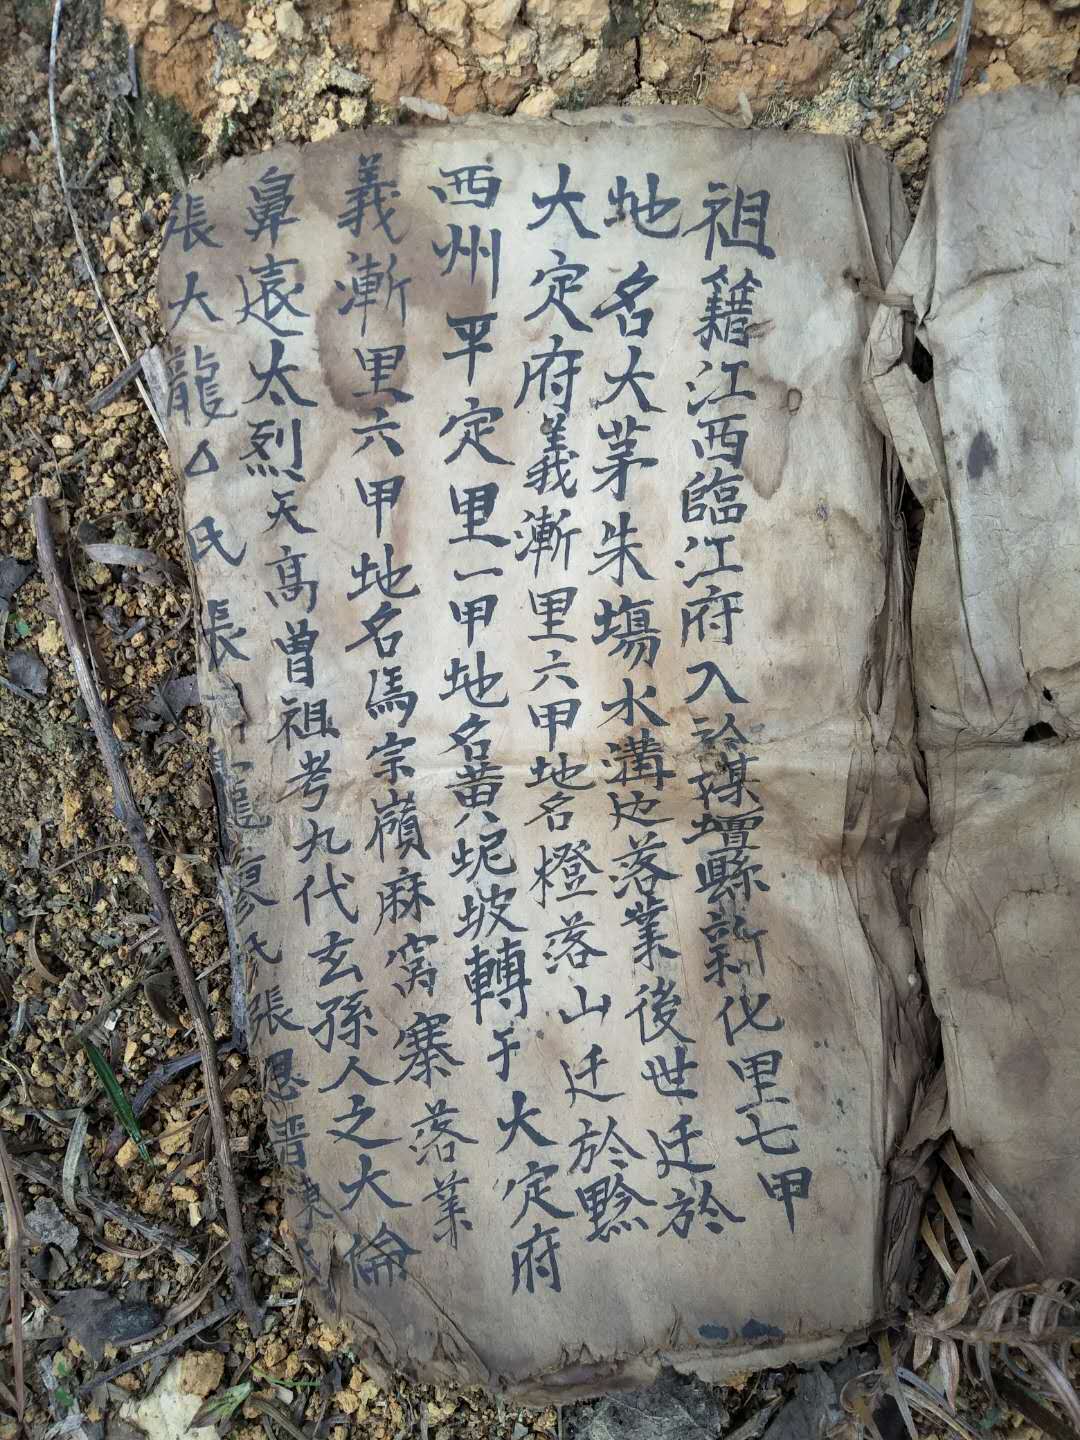 祖籍江西臨江府入於湄壇縣新化里七甲
地名大茅朱塲水溝边落業後世迁於
大定府義漸里六甲地名橙落山迁於黔
西州平定里一甲地名黄坭坡轉于大定府
義漸里六甲地名馬宗嶺麻窝寨落業
鼻遠太烈天高曾祖考九代玄孫人之大倫
張大龍厶氏 張 龍廖氏張恩晋陳氏